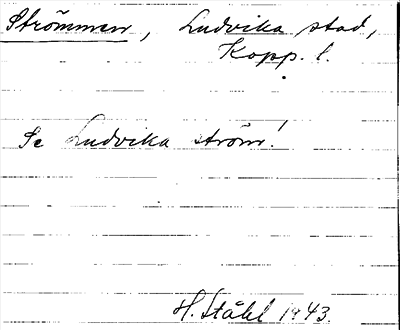 Strömmen, Ludvika stad,
Kopp. l.
Se Ludvika ström!
H. Ståhl 1943.